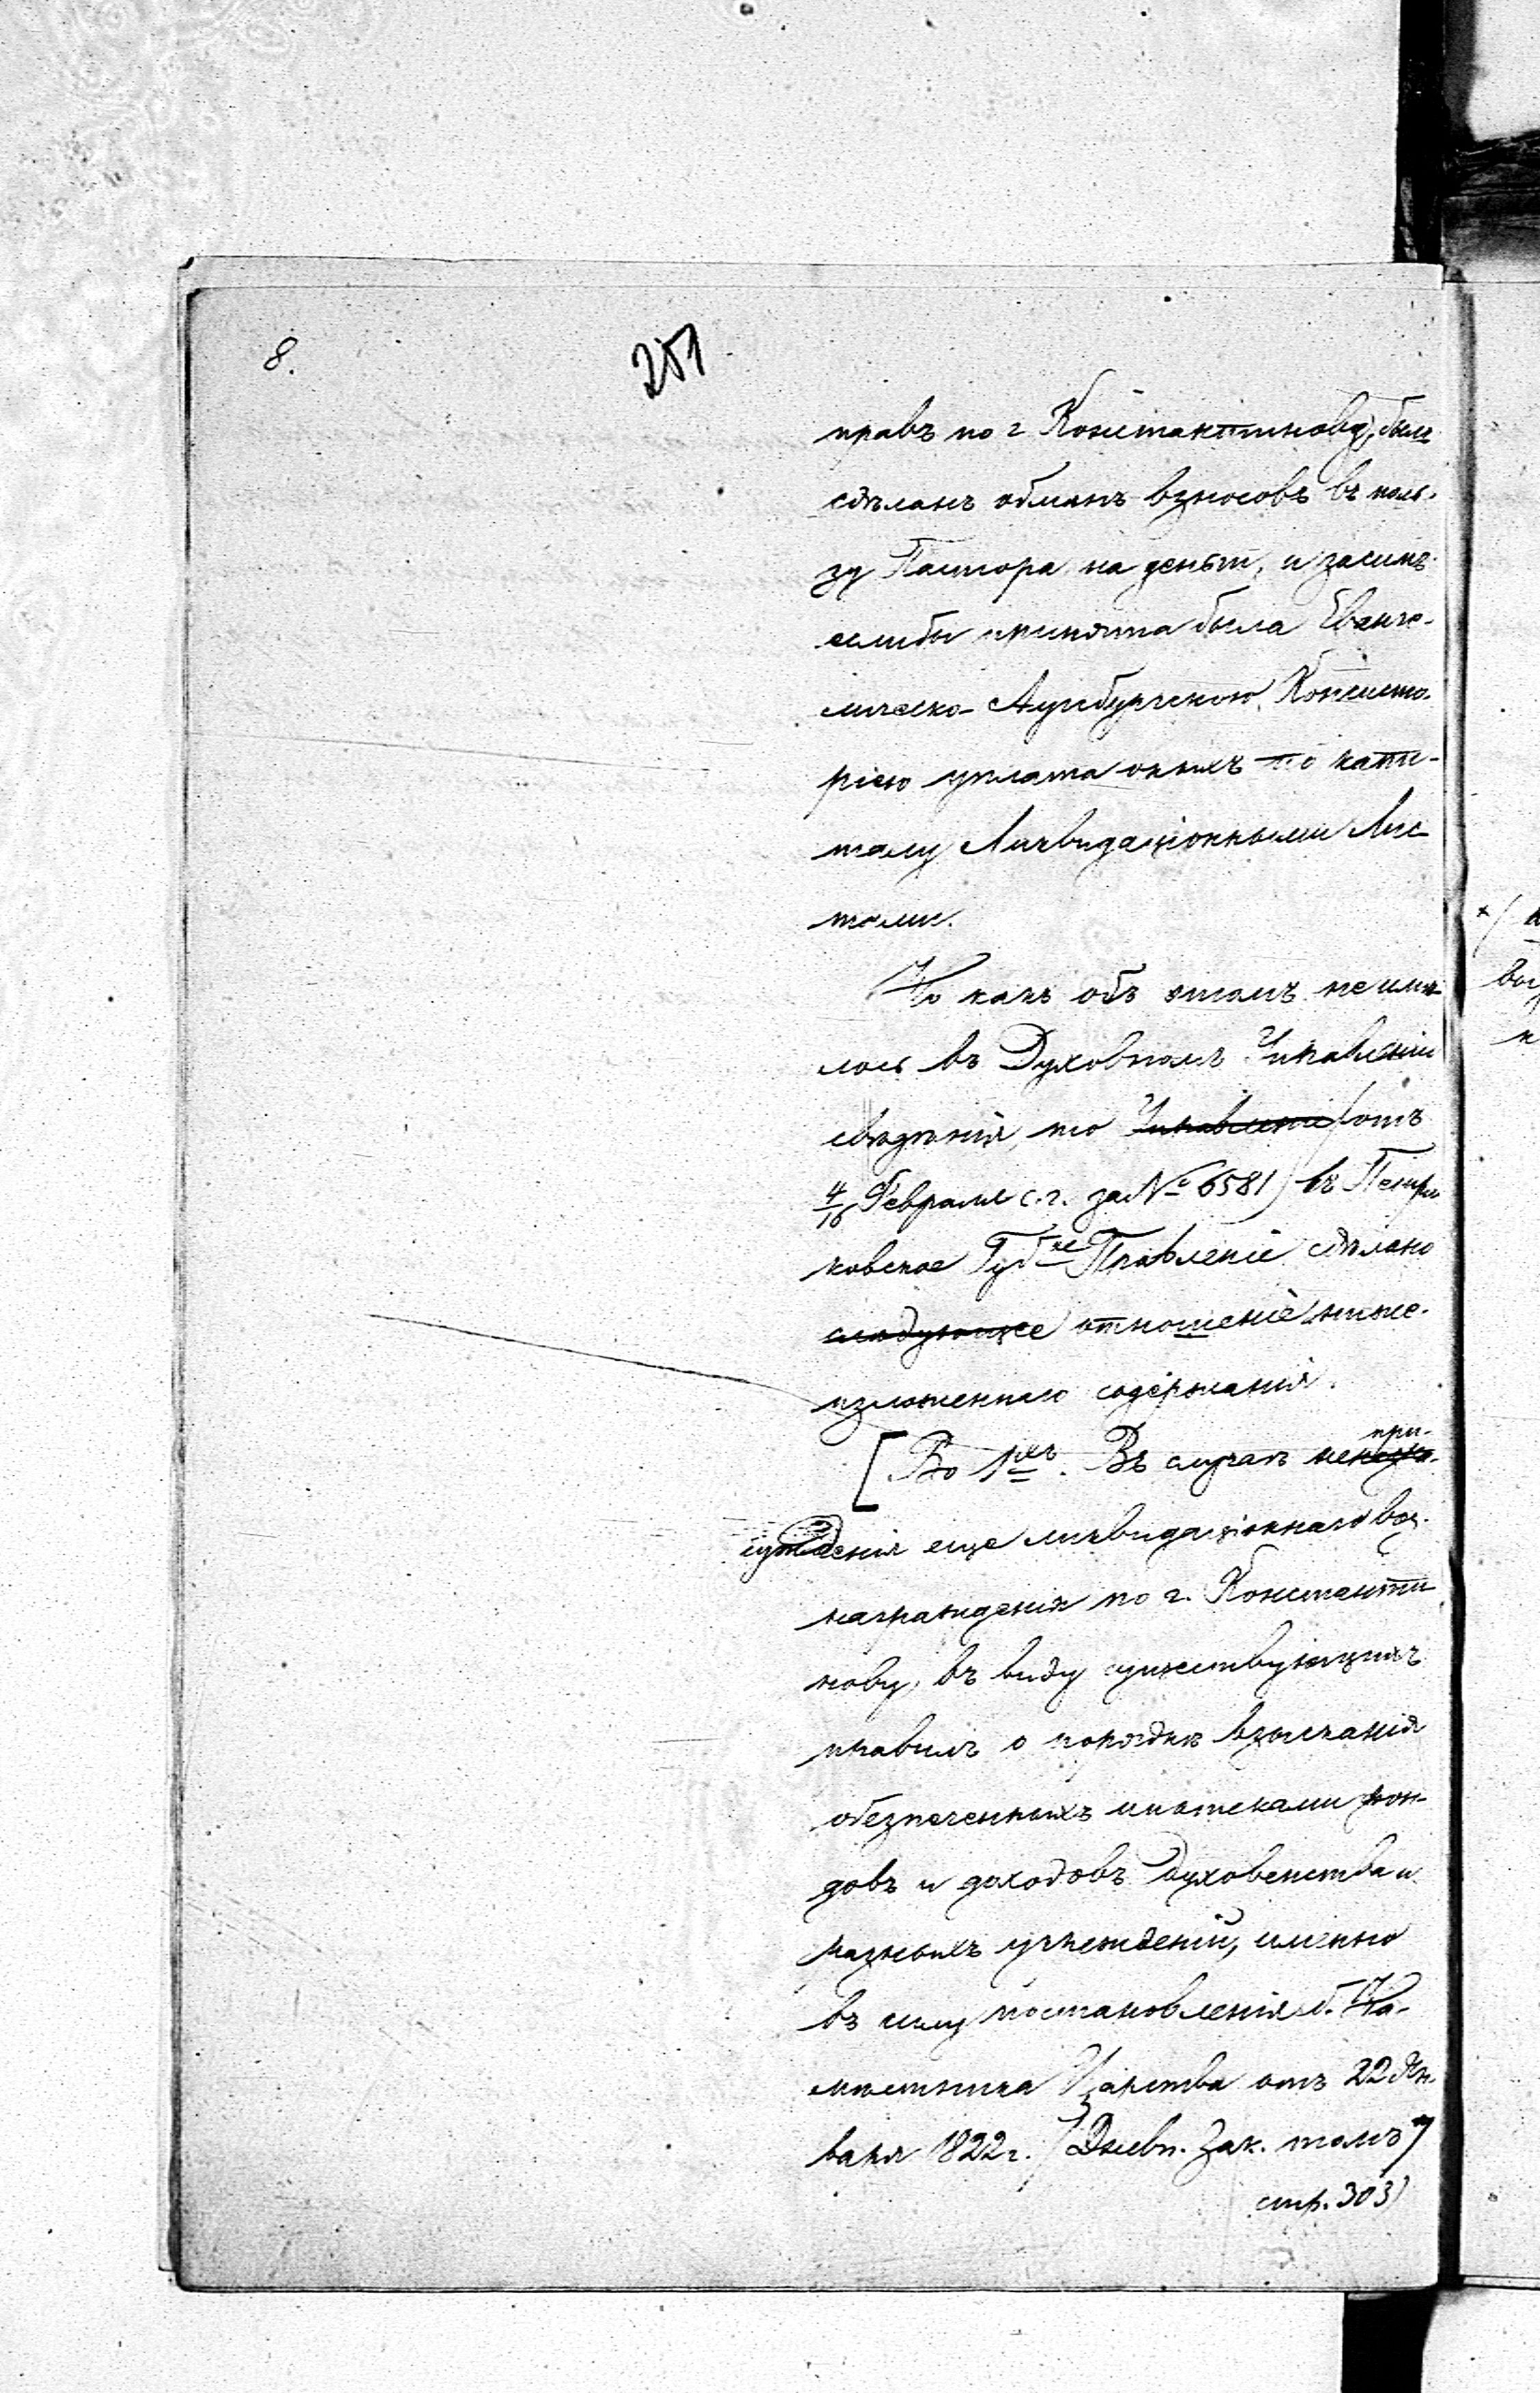 8.
251
правъ по г. Константинову, былъ
сдѣланъ обмѣнъ взносовъ въ поль-
зу Пастора на деньги, и засимъ
еслибы принята была Еванге-
лическо-Аугсбургскою Консисто-
ріею уплата оныхъ по капи-
талу Ликвидаціонными Лис
тами.
Но какъ объ этомъ не имѣ-
лось въ Духовномъ Управленіи
свѣдѣнія, то Управленіе (отъ
4/16 Февраля с. г. за № 6581) въ Петро
ковское Губ-ое Правленіе сдѣлано
слѣдующее отношеніе ниже-
изложеннаго содержанія.
[Во 1хъ. Въ случаѣ не при-
сужденія еще ликвидаціоннаго воз-
награжденія по г. Константи
нову, въ виду существующихъ
правилъ о порядкѣ взысканія
обезпеченныхъ ипотеками фон-
довъ и доходовъ духовенства и
разныхъ учрежденій, именно
въ силу постановленія б. На-
мѣстника Царства отъ 22 Ян-
варя 1822 г. (Дневн. Зак. томъ 7
стр. 303)